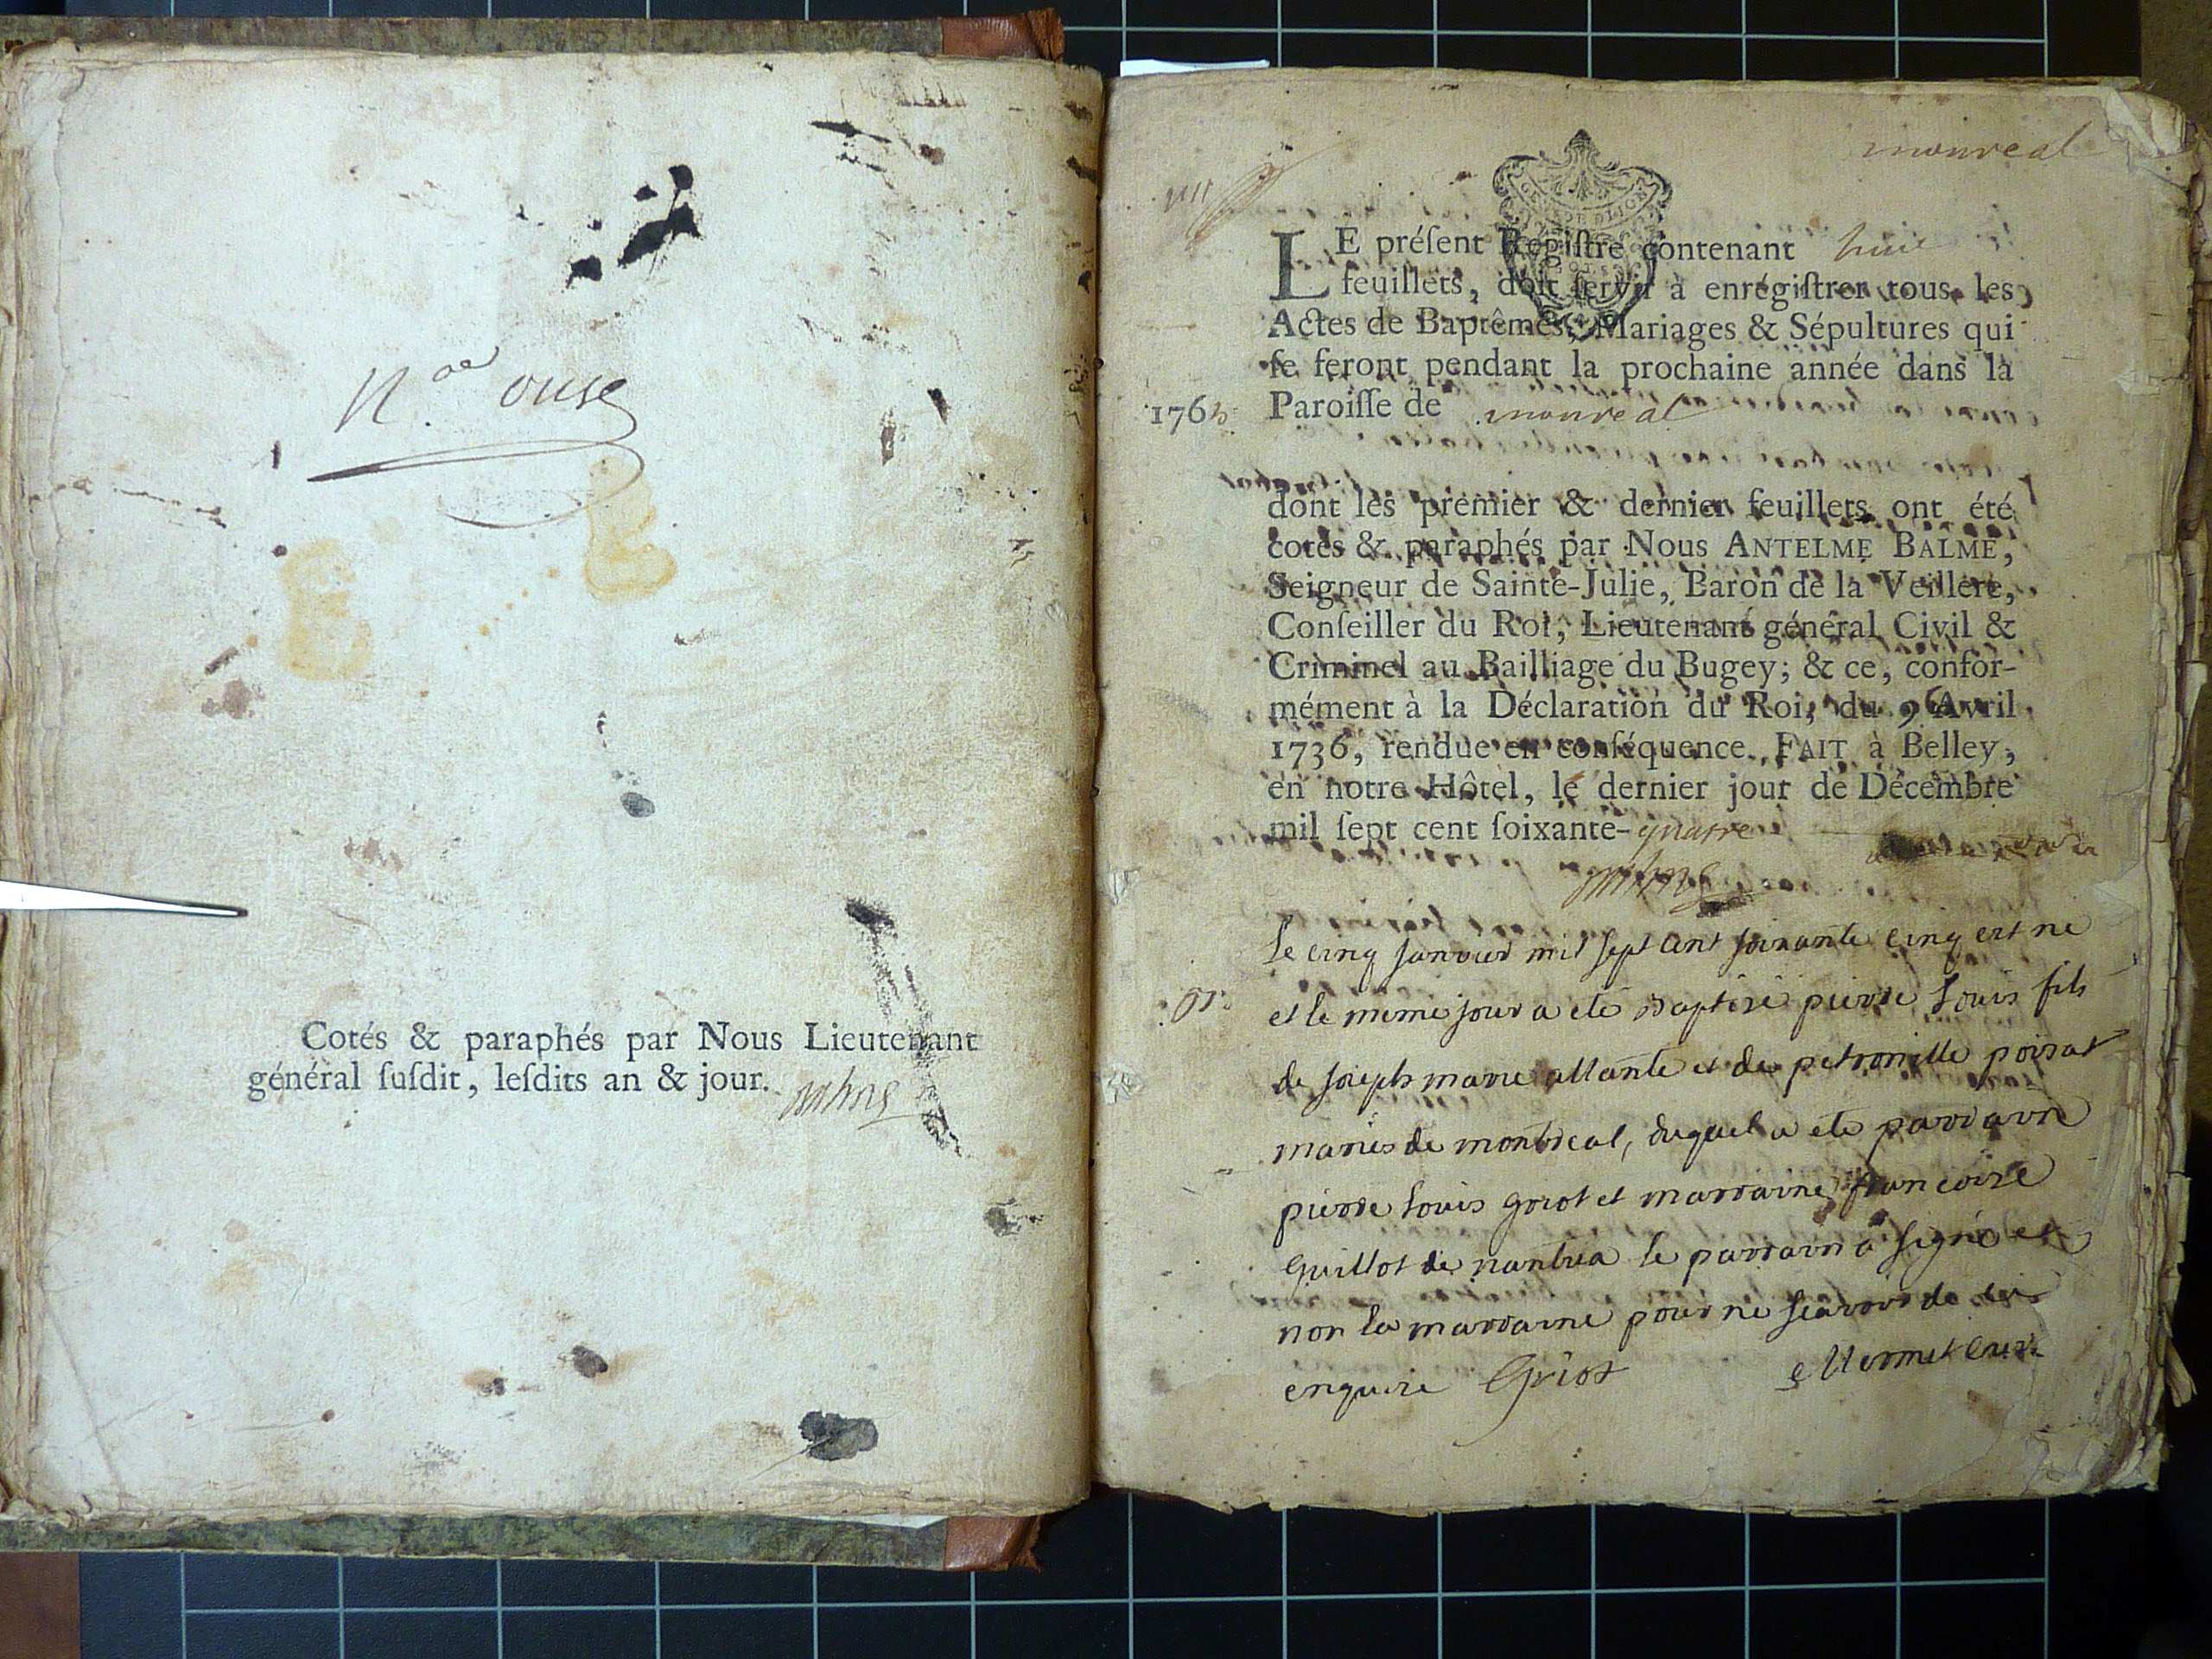 N.º onse
Cotés & paraphés par Nous Lieutenant
général ſuſdit, leſdits an & jour.
monreal
LE préſent Regiſtre contenant huit
feuillets, doit ſervir à enrégiſtrer tous les
Actes de Baptêmes, Mariages & Sépultures qui
ſe feront pendant la prochaine année dans la
1765
Paroiſſe de monreal
dont les premier & dernier feuillets ont été
cotés & paraphés par Nous ANTELME BALME,
Seigneur de Sainte-Julie, Baron de la Veillere,
Conſeiller du Roi, Lieutenant général Civil &
Criminel au Bailliage du Bugey; & ce, confor-
mément à la Déclaration du Roi, du 9 Avril
1736, rendue en conſéquence. FAIT à Belley,
en notre Hôtel, le dernier jour de Décembre
mil ſept cent ſoixante-quatre
le cinq janvier mil sept cent soixante cinq est né
et le meme jour a eté baptisé pierre Louis fils
de joseph marie allante et de petronille poizat
mariés de montreal, duquel a eté parrain
pierre Louis griot et marraine francoise
Guillot de nantua le parrain a signé et
non la marraine pour ne scavoir de ce
enquise Griot Mermet curé